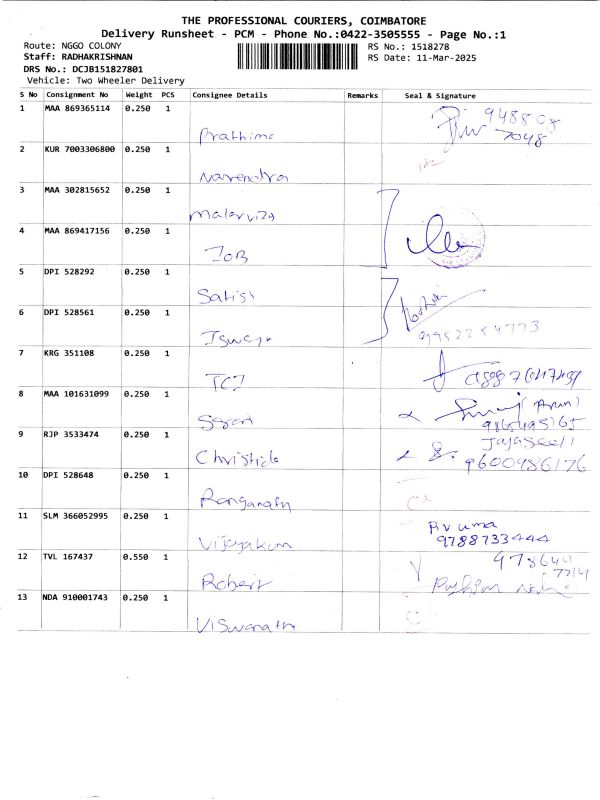 THE PROFESSIONAL COURIERS, COIMBATORE
Delivery Runsheet - PCM - Phone No.:0422-3505555 - Page No.:1
Route: NGGO COLONY
RS No.: 1518278
Staff: RADHAKRISHNAN
RS Date: 11-Mar-2025
DRS No.: DCJB151827801
Vehicle: Two Wheeler Delivery
S No Consignment No Weight PCS Consignee Details Remarks Seal & Signature
1 MAA 869365114 0.250 1
948808
7048
Prathima
2 KUR 7003306800 0.250 1
Narendra
3 MAA 302815652 0.250 1
Malarvizg
4 MAA 869417156 0.250 1
IOB
5 DPI 528292 0.250 1
Satish
6 DPI 528561 0.250 1
9952254773
7 KRG 351108 0.250 1
TCI
8 MAA 101631099 0.250 1
(Arun)
9 RJP 3533474 0.250 1
Christide
9600986176
10 DPI 528648 0.250 1
Ranganath
11 SLM 366052995 0.250 1
RV uma
9788733444
Vijayakum
12 TVL 167437 0.550 1
Robert
13 NDA 910001743 0.250 1
Viswanath